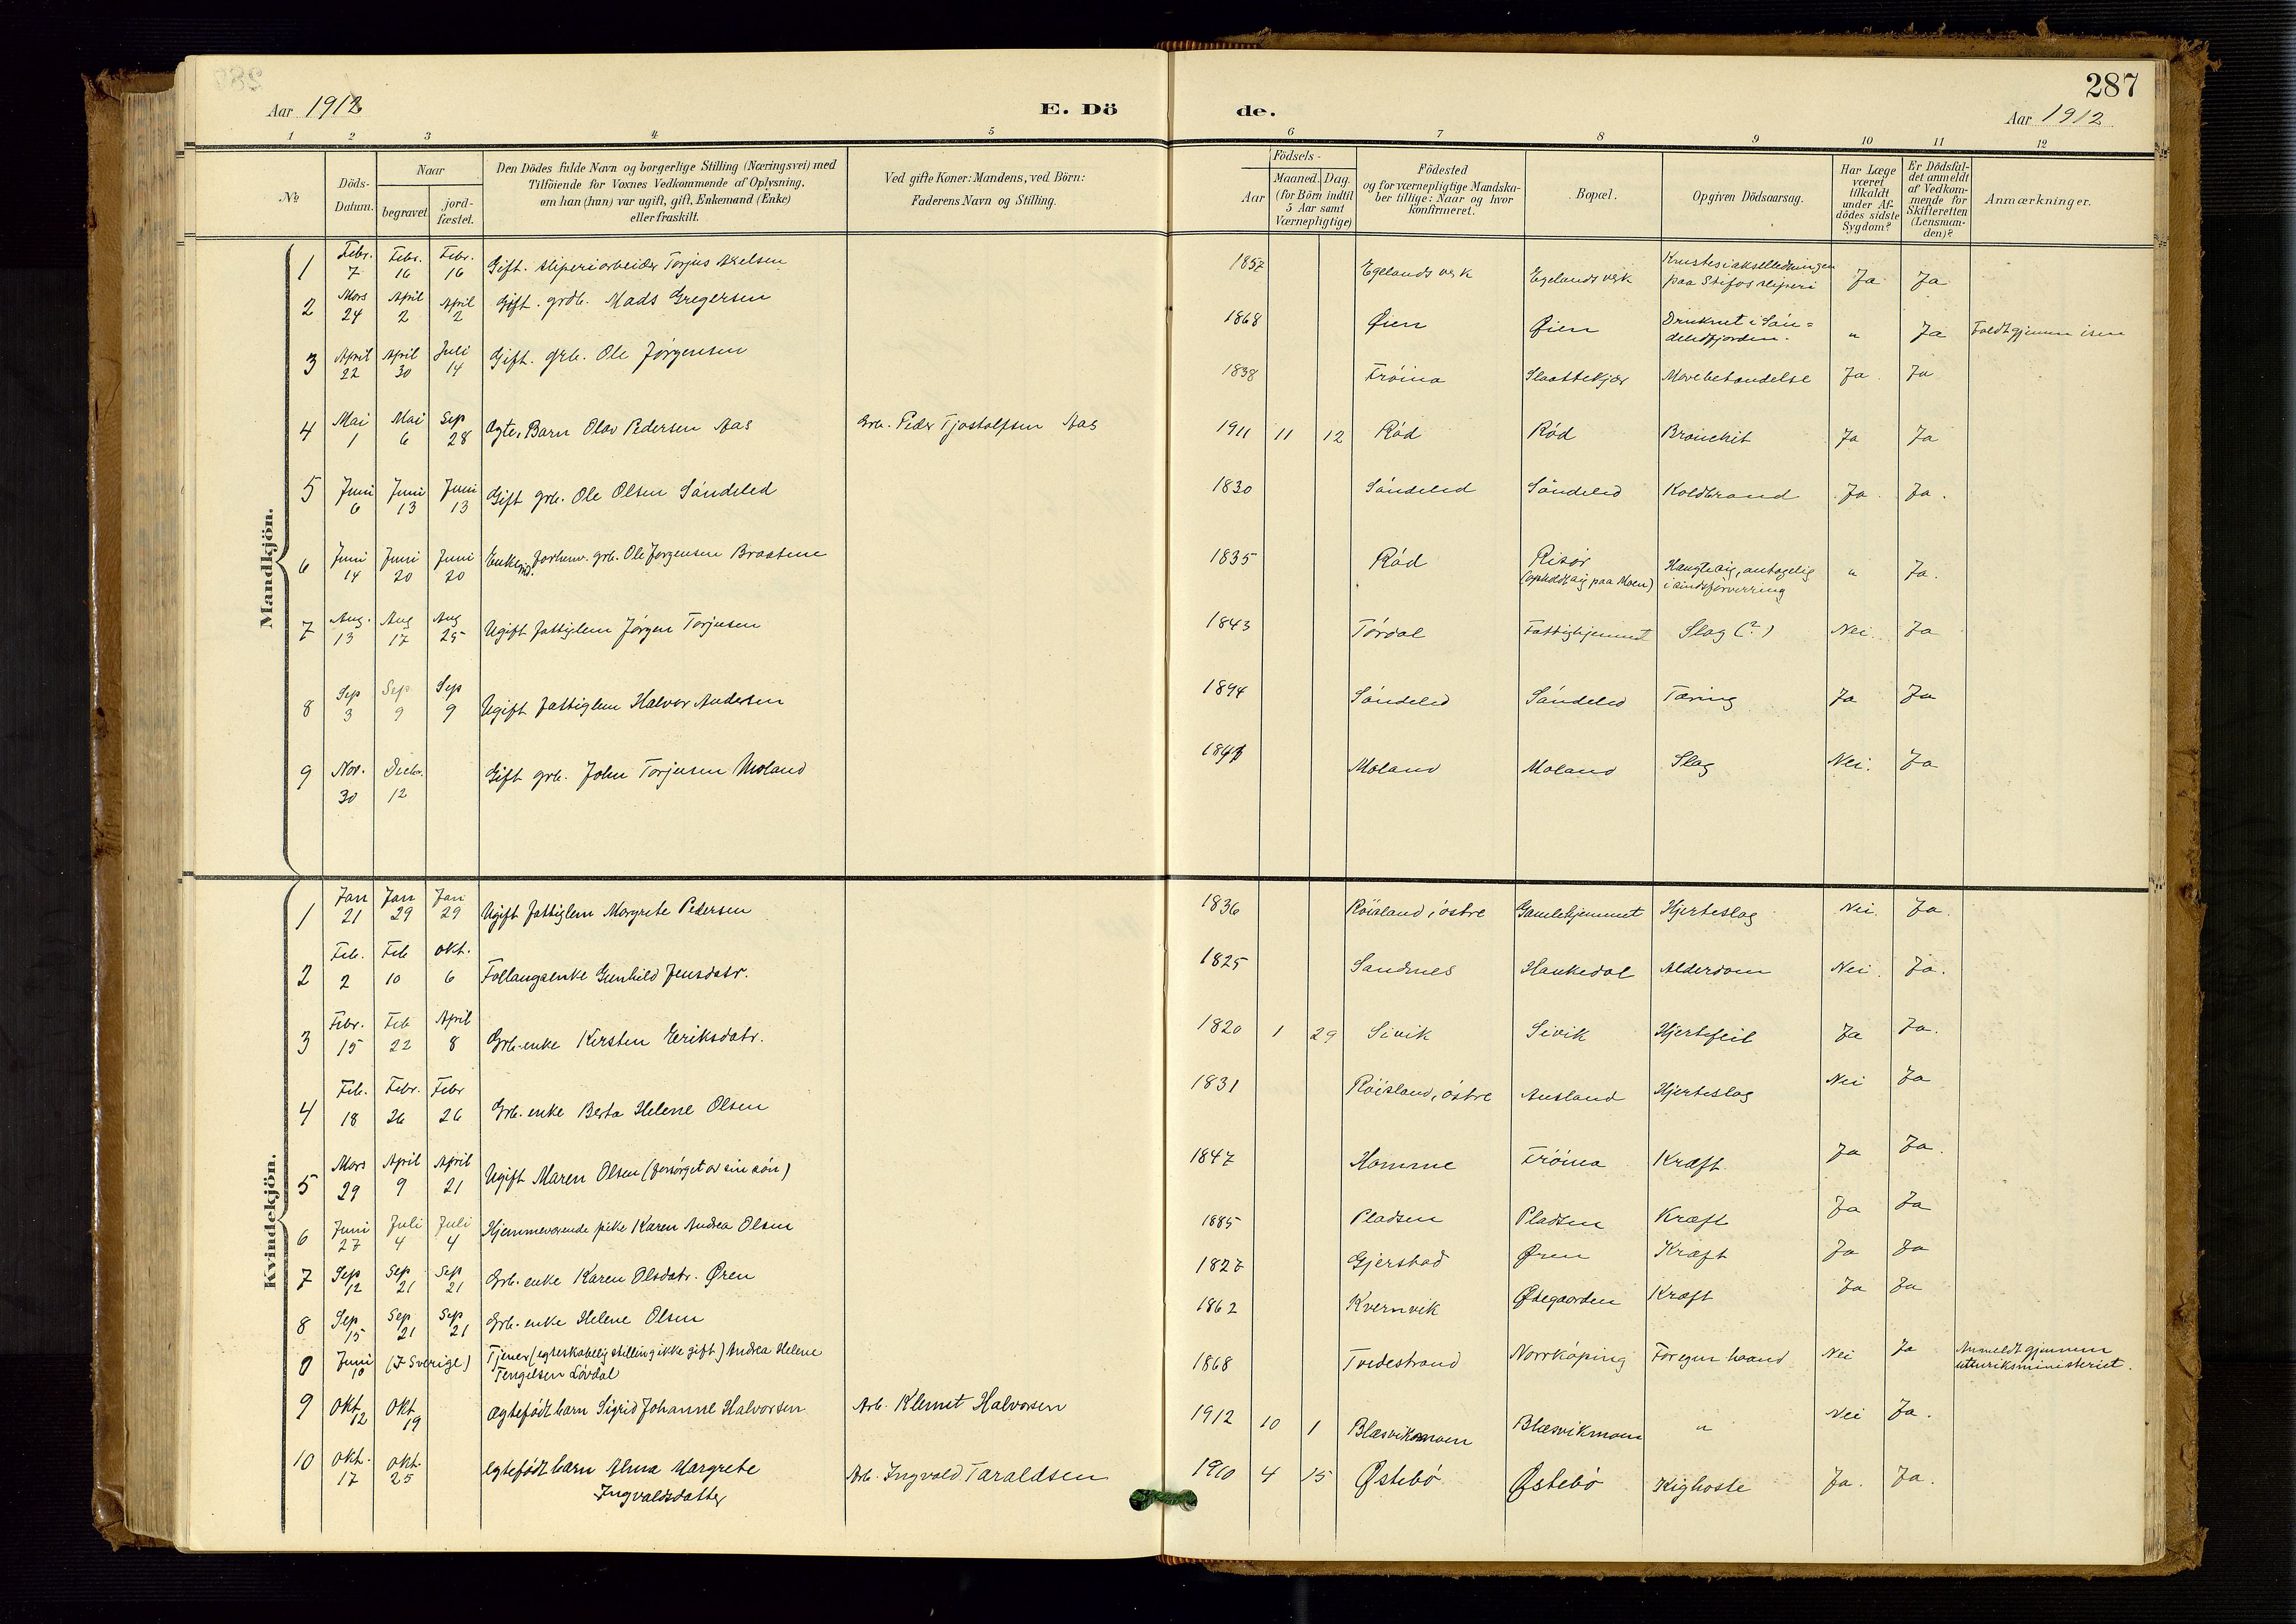 287
Aar 1912
E. Dö
de.
Aar 1912
1 2 3 4 5 6 7 8 9 10 11 12
No
Döds-Datum.
Naar
begravet.
jord-fæstet.
Den Dödes fulde Navn og borgerlige Stilling (Næringsvei) med
Tilföiende for Voxnes Vedkommende af Oplysning,
om han (hun) var ugift, gift, Enkemand (Enke)
eller fraskilt.
Ved gifte Koner: Mandens, ved Börn:
Faderens Navn og Stilling.
Födsels-
Aar
Maaned. Dag.
(for Börn indtil
5 Aar samt
Værnepligtige)
Födested
og for værnepligtige Mandska-
ber tillige: Naar og hvor
konfirmeret.
Bopæl.
Opgiven Dödsaarsag.
Har Læge
været
tilkaldt
under Af-
dödes sidste
Sygdom?
Er Dödsfal-
det anmeldt
af Vedkom-
mende for
Skifteretten
(Lensman-
den)?
Anmærkninger.
Mandkjön.
1 Febr. 7 Febr. 16 Febr. 16 Gift. sliperiarbeider Torjus Axelsen 1857 Egelands verk Egelands verk Knustes i akselledningen paa Stifos sliperi Ja Ja
2 Mars 24 April 2 April 2 Gift. grdb. Mads Gregersen 1868 Øien Øien Druknet i Sön=deledfjorden. " Ja Faldt gjennem isen
3 April 22 April 30 Juli 14 Gift. grb. Ole Jörgensen 1838 Fröina Slaattekjær Mavebetændelse Ja Ja
4 Mai 1 Mai 6 Sep 28 Ægte. Barn Olav Pedersen Aas Grb. Peder Tjostolfsen Aas 1911 11 12 Röd Röd Bronchit Ja Ja
5 Juni 6 Juni 13 Juni 13 Gift grb. Ole Olsen Söndeled 1830 Söndeled Söndeled Koldbrand Ja. Ja.
6 Juni 14 Juni 20 Juni 20 Enkem. forhenv. grb. Ole Jorgensen Braaten 1835 Röd Risör (opholdt sig paa Moen) Hængte sig, antagelig i sindsforvirring " Ja.
7 Aug. 13 Aug 17 Aug 25 Ugift fattiglem Jörgen Torjusen 1843 Tördal Fattighjemmet Slag (?) Nei. Ja
8 Sep 3 Sep 9 Sep 9 Ugift fattiglem Halvor Andersen 1894 Söndeled Söndeled Tæring Ja Ja
9 Nov. 30 Decbr. 12 Gift grb. John Torjusen Moland Moland Moland Slag Nei. Ja
Kvindekjön.
1 Jan 21 Jan 29 Jan 29 Ugift fattiglem Margrete Pedersen 1836 Röisland, östre Gamlehjemmet Hjerteslag Nei. Ja.
2 Feb. 2 Feb 10 Okt. 6 Follaugsenke Gunhild Jensdatr. 1825 Sandnes Haukedal Alderdom Nei. Ja.
3 Febr. 15 Feb 22 April 8 Grb.-enke Kirsten Eriksdatr. 1820 1 29 Sivik Sivik Hjertefeil Ja Ja.
4 Feb. 18 Febr. 26 Febr 26 Grb. enke Berta Helene Olsen 1831 Röisland, östre Ausland Hjerteslag Nei Ja
5 Mars 29 April 9 April 21 Ugift Maren Olsen (forsörget av sin sön) 1847 Homme Fröina Kræft Ja Ja.
6 Juni 27 Juli 4 Juli 4 Hjemmeværende pike Karen Andrea Olsen 1885 Pladsen Pladsen Kræft Ja Ja
7 Sep 12 Sep 21 Sep 21 Grb. enke Karen Olsdatr. Øren 1827 Gjerstad Øren Kræft Ja Ja
8 Sep 15 Sep 21 Sep 21 Grb.-enke Helene Olsen 1862 Kvernvik Ødegaarden Kræft Ja Ja
0 Juni 10 (I Sverige) Tjener (egteskabelig stilling ikke gift) Andrea Helene Tengelsen Lövdal 1868 Tvedestrand Norrköping For egen haand Nei Ja Anmeldt gjennem utenriksministeriet.
9 Okt 12 Okt 19 Ægtefödt barn Sigrid Johanne Halvorsen Arb. Klemet Halvorsen 1912 10 1 Blæsvikmoen Blæsvikmoen " Nei Ja.
10 Okt. 17 Okt. 25 Egtefödt barn Alma Margrete Ingvaldsdatter Arb. Ingvald Taraldsen 1910 4 15 Østebö Østebö Kighoste Ja. Ja.